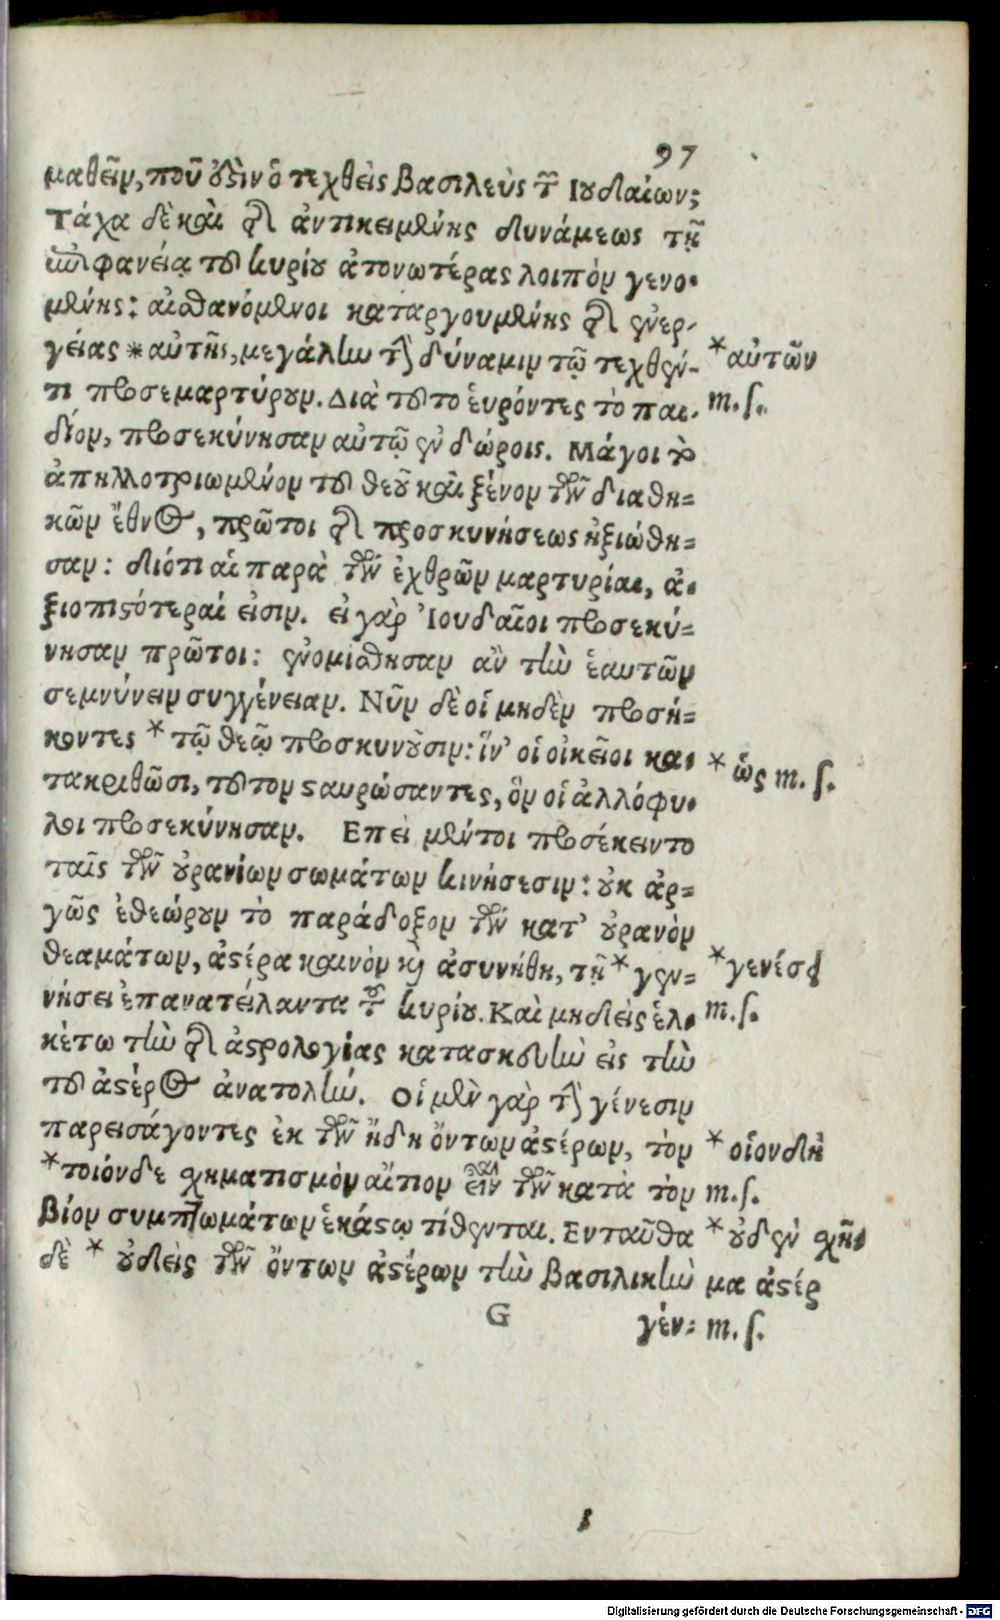 97
μαθεῖν, ποῦ ὅϛιν ὁ τεχθεὶς βασιλεὺς τῶν Ἰουδαίων;
Τάχα δὲ καὶ τῆς ἀντικειμένης δυνάμεως τῇ
ἐπιφανείᾳ τοῦ κυρίου ἀτονωτέρας λοιπὸν γενο-
μένης: αἰσθανόμενοι καταργουμένης τῆς ἐνερ-
γείας * αὐτῆς, μεγάλην τὴν δύναμιν τῷ τεχθέν-
τι προσεμαρτύρουν. Διὰ τοῦτο εὑρόντες τὸ παι-
δίον, προσεκύνησαν αὐτῷ ἐν δώροις. Μάγοι τὸ
ἀπηλλοτριωμένον τοῦ θεοῦ καὶ ξένον τῶν διαθη-
κῶν ἔθνος, πρῶτοι τῆς προσκυνήσεως ἠξιώθη-
σαν: διότι αἱ παρὰ τῶν ἐχθρῶν μαρτυρίαι, ἀ-
ξιοπιϛότεραί εἰσιν. εἰ γὰρ Ἰουδαῖοι προσεκύ-
νησαν πρῶτοι: ἐνομίσθησαν ἂν τὴν ἑαυτῶν
σεμνύνειν συγγένειαν. Νῦν δὲ οἱ μηδὲν προσή-
κοντες * τῷ θεῷ προσκυνοῦσιν: ἵν' οἱ οἰκεῖοι κα-
τακριθῶσι, τοῦτον ϛαυρώσαντες, ὃν οἱ ἀλλόφυ-
λοι προσεκύνησαν. Επεὶ μέντοι προσέκειντο
ταῖς τῶν οὐρανίων σωμάτων κινήσεσιν: οὐκ ἀρ-
γῶς ἐθεώρουν τὸ παράδοξον τῶν κατ' οὐρανὸν
θεαμάτων, ἀϛέρα καινὸν καὶ ἀσυνήθη, τῇ * γεν-
νήσει ἐπανατείλαντα τοῦ κυρίου. Καὶ μηδεὶς ἑλ-
κέτω τὴν τῆς ἀϛρολογίας κατασκευὴν εἰς τὴν
τοῦ ἀϛέρος ἀνατολήν. Οἱ μὲν γὰρ τὴν γένεσιν
παρεισάγοντες ἐκ τῶν ἤδη ὄντων ἀϛέρων, τὸν
* τοιόνδε σχηματισμὸν αἴτιον εἶναι τῶν κατὰ τὸν
βίον συμπτωμάτων ἑκάϛῳ τίθενται. Ενταῦθα
δὲ * οὐδεὶς τῶν ὄντων ἀϛέρων τὴν βασιλικὴν
G γέν-
* αὐτῶν
m. ſ.
* ὡς m. ſ.
* γενέσει
m. ſ.
* οἱονδὴ
m. ſ.
* οὐδὲν σχῆ-
μα ἀϛέρ
m. ſ.
Digitalisierung gefördert durch die Deutsche Forschungsgemeinschaft - DFG